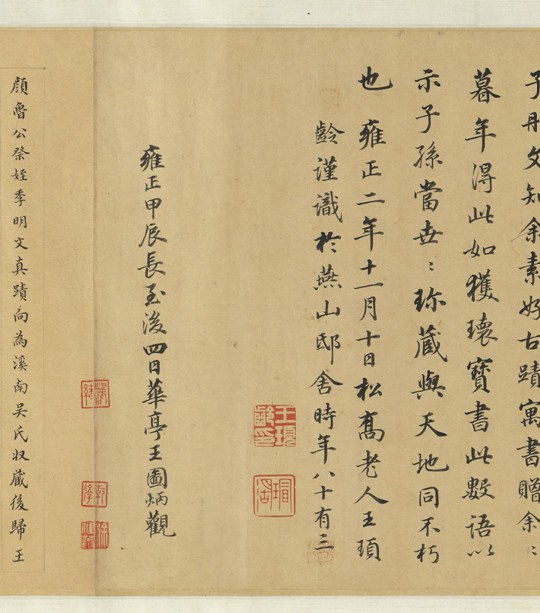 子丹文知余素好古蹟寓書贈余〻
暮年得此如獲瓌寶書此數語以
示子孫當世〻珍藏與天地同不朽
也雍正二年十一月十日松喬老人王頊
齡謹識於燕山邸舍時年八十有三
王頊
齡印
雍正甲辰長至後四日華亭王圖炳觀
顏魯公祭姪季明文真蹟向為溪南吳氏收藏後歸王